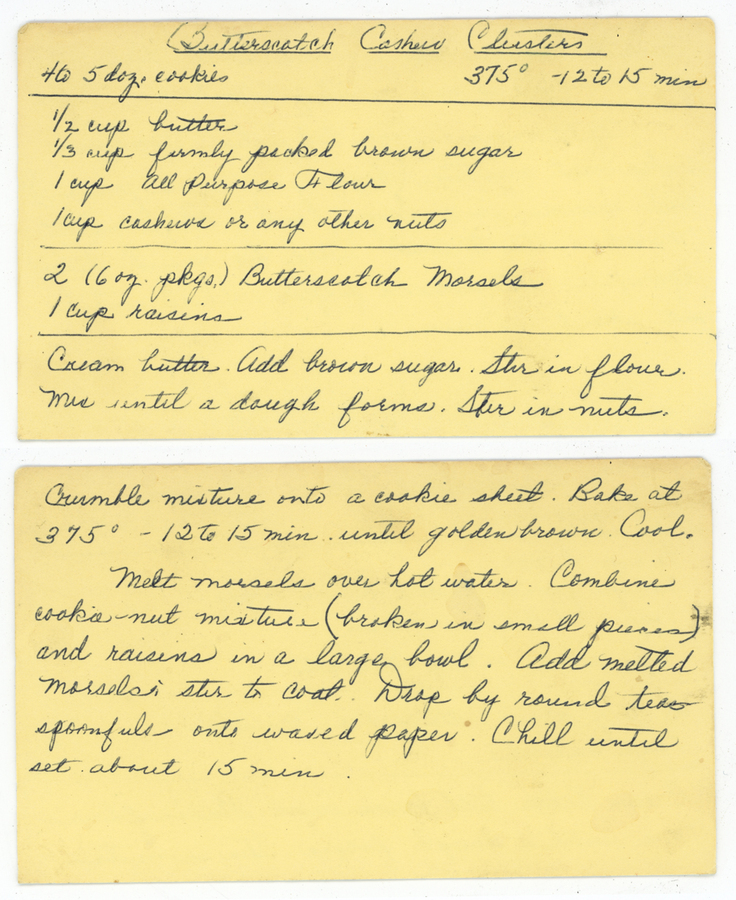 Butterscotch Cashew Clusters
4 to 5 doz. cookies 375° - 12 to 15 min
1/2 cup butter
1/3 cup firmly packed brown sugar
1 cup All Purpose Flour
1 cup cashews or any other nuts
2 (6 oz. pkgs.) Butterscotch Morsels
1 cup raisins
Cream butter. Add brown sugar. Stir in flour.
Mix until a dough forms. Stir in nuts.
Crumble mixture onto a cookie sheet. Bake at
375° - 12 to 15 min. until golden brown. Cool.
Melt morsels over hot water. Combine
cookie-nut mixture (broken in small pieces)
and raisins in a large bowl. Add melted
morsels; stir to coat. Drop by round tea-
spoonfuls onto waxed paper. Chill until
set. about 15 min.